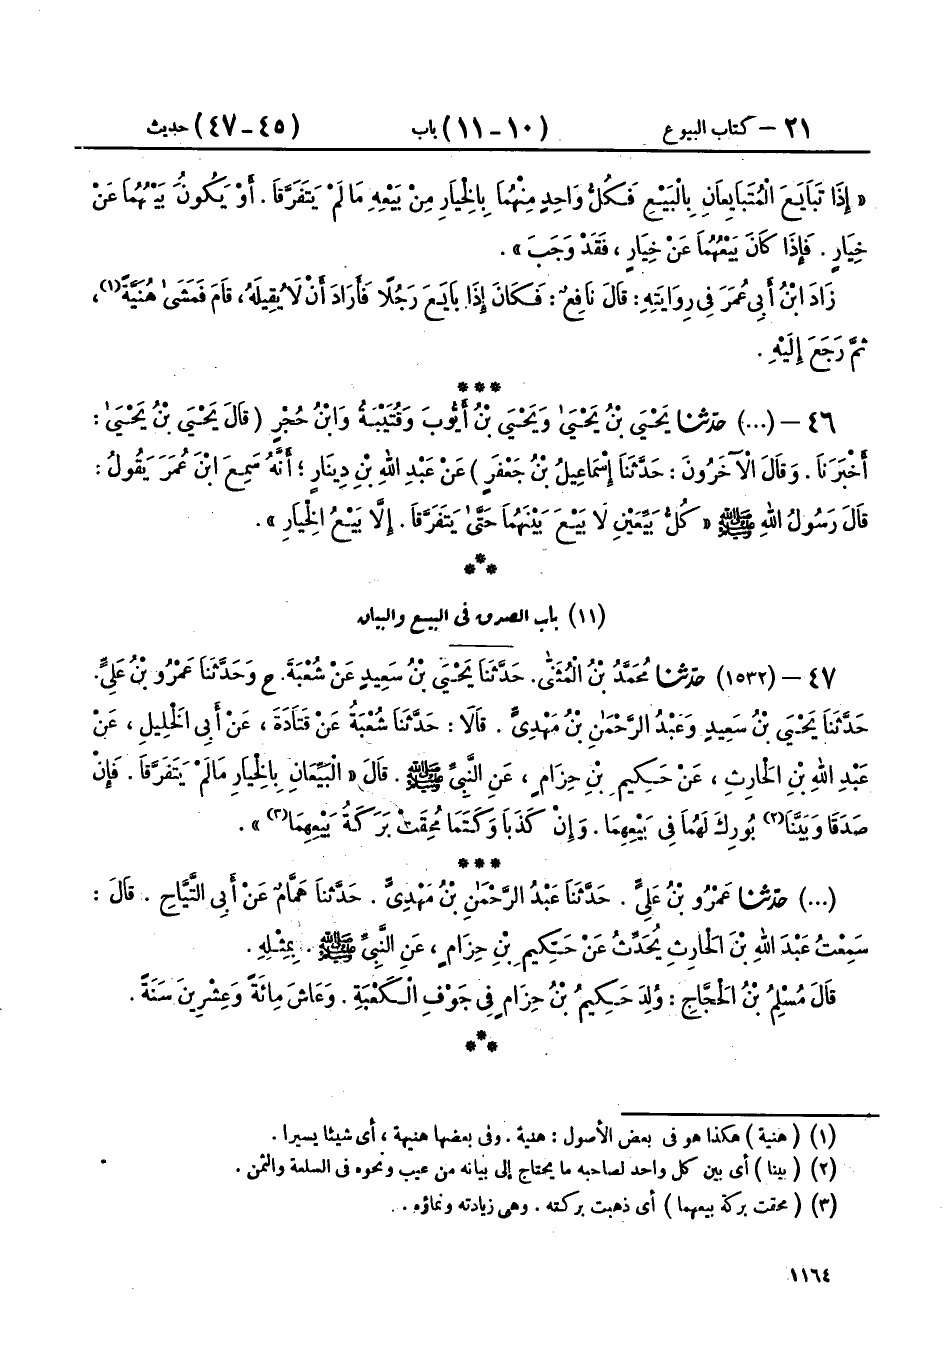 ٢١ – كتاب البيوع (١٠–١١) باب (٤٥–٤٧) حديث
« إِذَا تَبَايَعَ الْمُتَبَايِعَانِ بِالْبَيْعِ فَكُلُّ وَاحِدٍ مِنْهُمَا بِالْخِيَارِ مِنْ بَيْعِهِ مَا لَمْ يَتَفَرَّقَا . أَوْ يَكُونُ بَيْعُهُمَا عَنْ
خِيَارٍ . فَإِذَا كَانَ بَيْعُهُمَا عَنْ خِيَارٍ ، فَقَدْ وَجَبَ » .
زَادَ ابْنُ أَبِي عُمَرَ فِي رِوَايَتِهِ : قَالَ نَافِعٌ : فَكَانَ إِذَا بَايَعَ رَجُلًا فَأَرَادَ أَنْ لَا يُقِيلَهُ ، قَامَ فَمَشَىٰ هُنَيَّةً(١) ،
ثُمَّ رَجَعَ إِلَيْهِ .
***
٤٦ – (...) حدّثنا يَحْيَىٰ بْنُ يَحْيَىٰ وَيَحْيَىٰ بْنُ أَيُّوبَ وَقُتَيْبَةُ وَابْنُ حُجْرٍ ( قَالَ يَحْيَىٰ بْنُ يَحْيَىٰ :
أَخْبَرَنَا . وَقَالَ الْآخَرُونَ : حَدَّثَنَا إِسْمَاعِيلُ بْنُ جَعْفَرٍ ) عَنْ عَبْدِ اللهِ بْنِ دِينَارٍ ؛ أَنَّهُ سَمِعَ ابْنَ عُمَرَ يَقُولُ :
قَالَ رَسُولُ اللهِ ﷺ « كُلُّ بَيِّعَيْنِ لَا بَيْعَ بَيْنَهُمَا حَتَّىٰ يَتَفَرَّقَا . إِلَّا بَيْعُ الْخِيَارِ » .
***
(١١) باب الصدق فى البيع والبيان
٤٧ – (١٥٣٢) حدّثنا مُحَمَّدُ بْنُ الْمُثَنَّىٰ . حَدَّثَنَا يَحْيَىٰ بْنُ سَعِيدٍ عَنْ شُعْبَةَ . ح وَحَدَّثَنَا عَمْرُو بْنُ عَلِيٍّ .
حَدَّثَنَا يَحْيَىٰ بْنُ سَعِيدٍ وَعَبْدُ الرَّحْمَٰنِ بْنُ مَهْدِيٍّ . قَالَا : حَدَّثَنَا شُعْبَةُ عَنْ قَتَادَةَ ، عَنْ أَبِي الْخَلِيلِ ، عَنْ
عَبْدِ اللهِ بْنِ الْحَارِثِ ، عَنْ حَكِيمِ بْنِ حِزَامٍ ، عَنِ النَّبِيِّ ﷺ . قَالَ « الْبَيِّعَانِ بِالْخِيَارِ مَا لَمْ يَتَفَرَّقَا . فَإِنْ
صَدَقَا وَبَيَّنَا(٢) بُورِكَ لَهُمَا فِي بَيْعِهِمَا . وَإِنْ كَذَبَا وَكَتَمَا مُحِقَتْ بَرَكَةُ بَيْعِهِمَا(٣) » .
***
(...) حدّثنا عَمْرُو بْنُ عَلِيٍّ . حَدَّثَنَا عَبْدُ الرَّحْمَٰنِ بْنُ مَهْدِيٍّ . حَدَّثَنَا هَمَّامٌ عَنْ أَبِي التَّيَّاحِ . قَالَ :
سَمِعْتُ عَبْدَ اللهِ بْنَ الْحَارِثِ يُحَدِّثُ عَنْ حَكِيمِ بْنِ حِزَامٍ ، عَنِ النَّبِيِّ ﷺ . بِمِثْلِهِ .
قَالَ مُسْلِمُ بْنُ الْحَجَّاجِ : وُلِدَ حَكِيمُ بْنُ حِزَامٍ فِي جَوْفِ الْكَعْبَةِ . وَعَاشَ مِائَةً وَعِشْرِينَ سَنَةً .
***
(١) ( هنية ) هكذا هو فى بعض الأصول : هنية . وفى بعضها هنيهة ، أى شيئا يسيرا .
(٢) ( بينا ) أى بين كل واحد لصاحبه ما يحتاج إلى بيانه من عيب ونحوه فى السلعة والثمن .
(٣) ( محقت بركة بيعهما ) أى ذهبت بركته . وهى زيادته ونماؤه .
١١٦٤